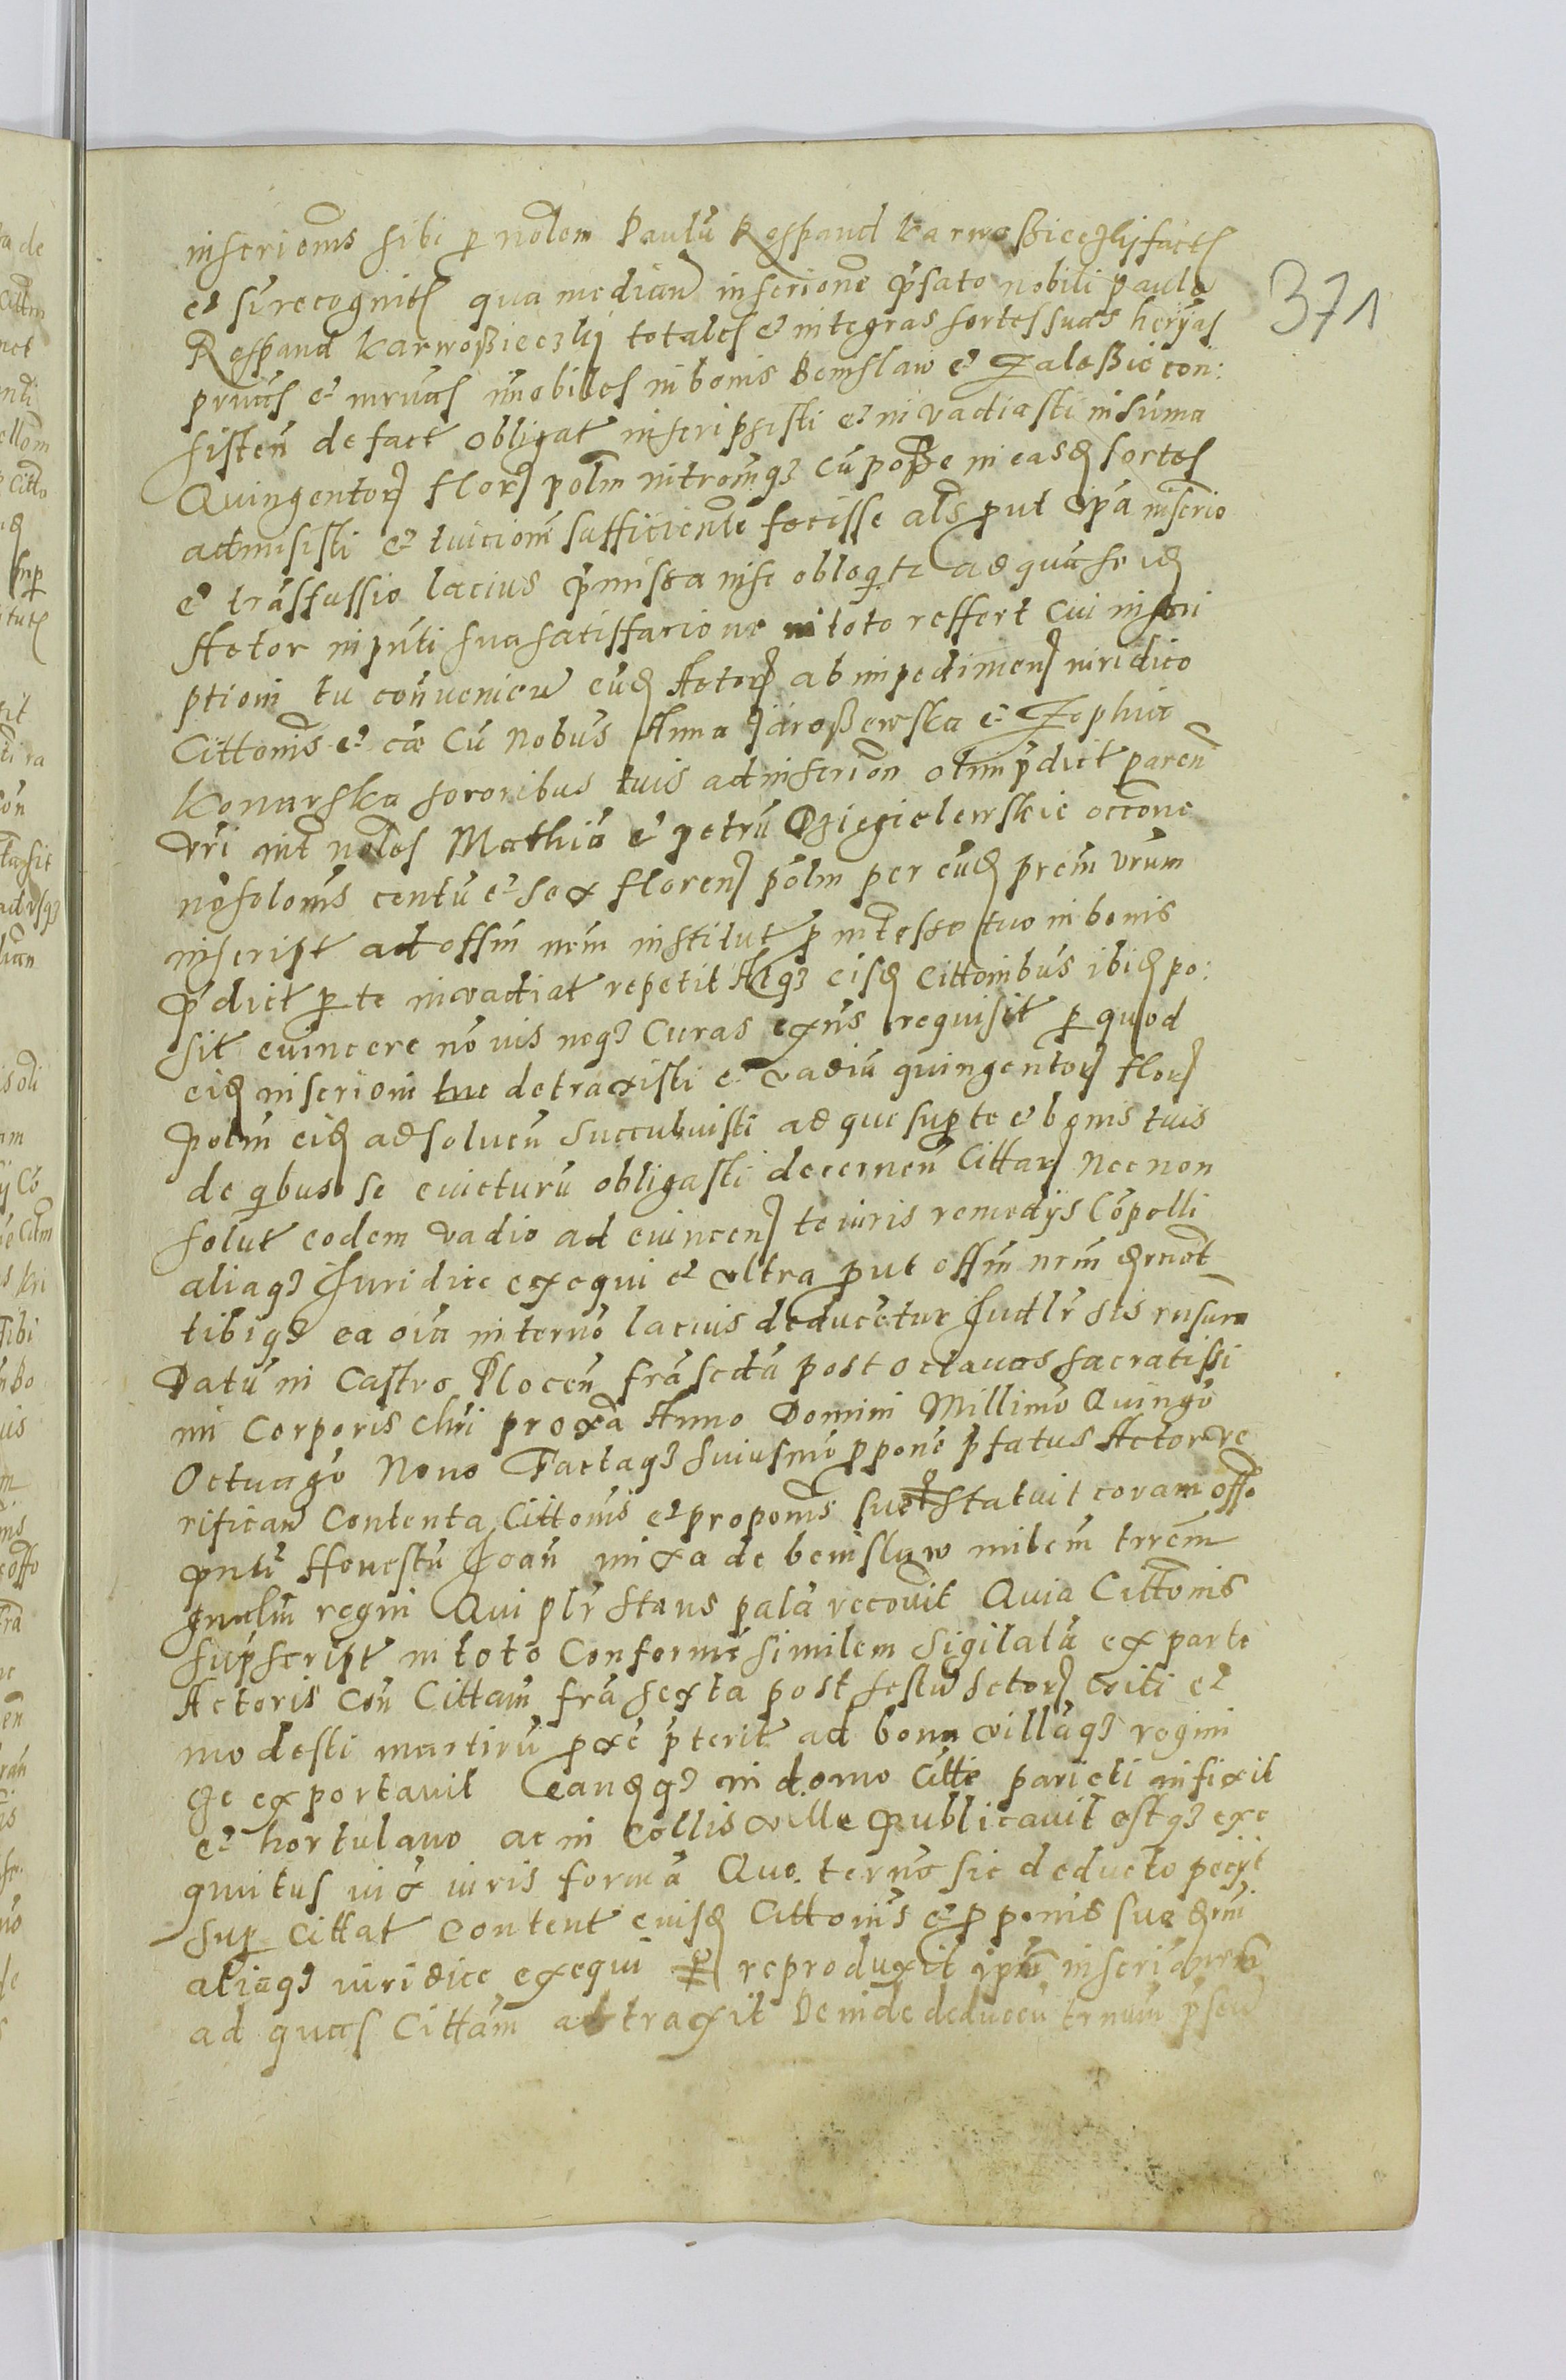 inscrionis sibi p nobilem Paulu Respand Karwoßieczky fact
et su recognit qua median inscrione pfato nobili Paulo
371
Respand Karwoßieczky totales et integras sortes suas herijas
prvas et mrvas imobiles in bonis Bemslaw et Zaleßie con:
sisten de fact obligat inscripsisti et invadiasti in suma
Quingentor flor polm intromq cu poße in easd sortes
admisisti et tuicionem sufficiente fecisse als put ipa inscrio
et trasfussio lacius pmissa in se obloqitr ad qua se id
Actor in pnti sua satisffacione in toto reffert Cui inscri
ptioni tu convenien eud Actore ab impedimen iuridico
Cittonis et ca Cu Nobus Anna Jaroßewska et Zophia
Konarska sororibus tuis ad inscrion olim pdict paren
vri int nobles Mathia et petru Dziegielewskie occone
no solonis centu et sex floren polm per eud prem vrum
inscript ad offm nrm institut p intesse tuo in bonis
pdict p te invadiat repetit Atq eisd Cittonibus ibid po:
sit evincere no vis neq Curas exns requisit p quod
eid inscrioni tue detraxisti et vadiu quingentor flor
polm eid ad solven succubuisti ad que sup te et bonis tuis
de qibus se evicturu obligasti decernen Cittar Necnon
solut eodem vadio ad evincen te iuris remedijs Copelli
aliaq Juridice exequi et ultra put offm nrm
tibiq ea oia in terno lacius deducetur Judlr sis rnsurn
Datu in Castro Plocen fra scda post octavas sacratissi
mi Corporis Chri proxa Anno Domini Millimo Quingo
Octuago Nono Factaq huiusmo ppone pfatus Actor ve
rifican Contenta Cittonis et proponis sue Statuit coram offo
pnti Honestu Joan mixa de benislaw milem trrem
gnalm regni Qui plr stans pala recovit Quia Cittonis
supscript in toto Conforme similem sigilata ex parte
Actoris Con Cittam fra sexta post festu sctor viti et
modesti martiru pxe pterit ad bona villaq regimi
ce exportavit Eandq in domo Citte parieti infixit
et hortulano ac in Collis ville publicavit estq exe
quutus iux iuris forma Quo terno sic deducto pecijt
sup Cittat Content eiusd Cittonis et pponis sue drni
aliaq iuridice exequi et reproduxit ipm inscri
ad quas Cittam attraxit Deinde deducen trnum